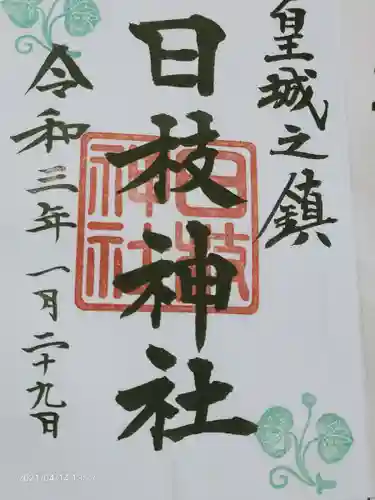 皇城之鎮
日枝神社
令和三年一月二十九日
日枝
神社